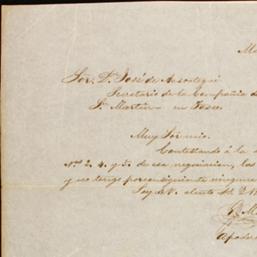 Sor. Dn. José de Ansotegui
Secretario de la Compañia d
Sn. Martin en Tasco.
Muy Sor mio.
Contestando á la
Nos. 2. 4. y 5. de esa negociacion, las
y no tengo por consiguiente ningun
Soy de V. atento S.